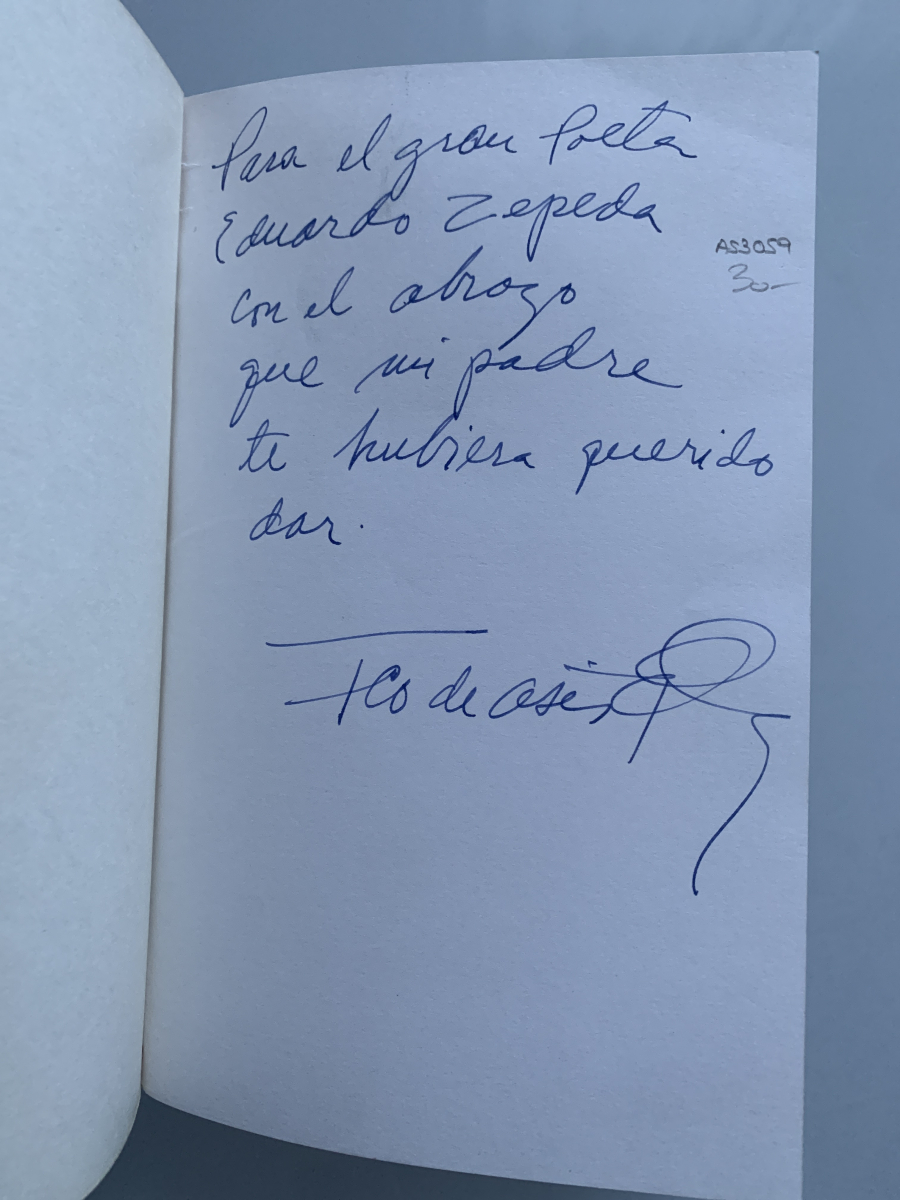 Para el gran Poeta
Eduardo Zepeda
AS3059
30-
con el abrazo
que mi padre
te hubiera querido
dar.
Fco de Asís